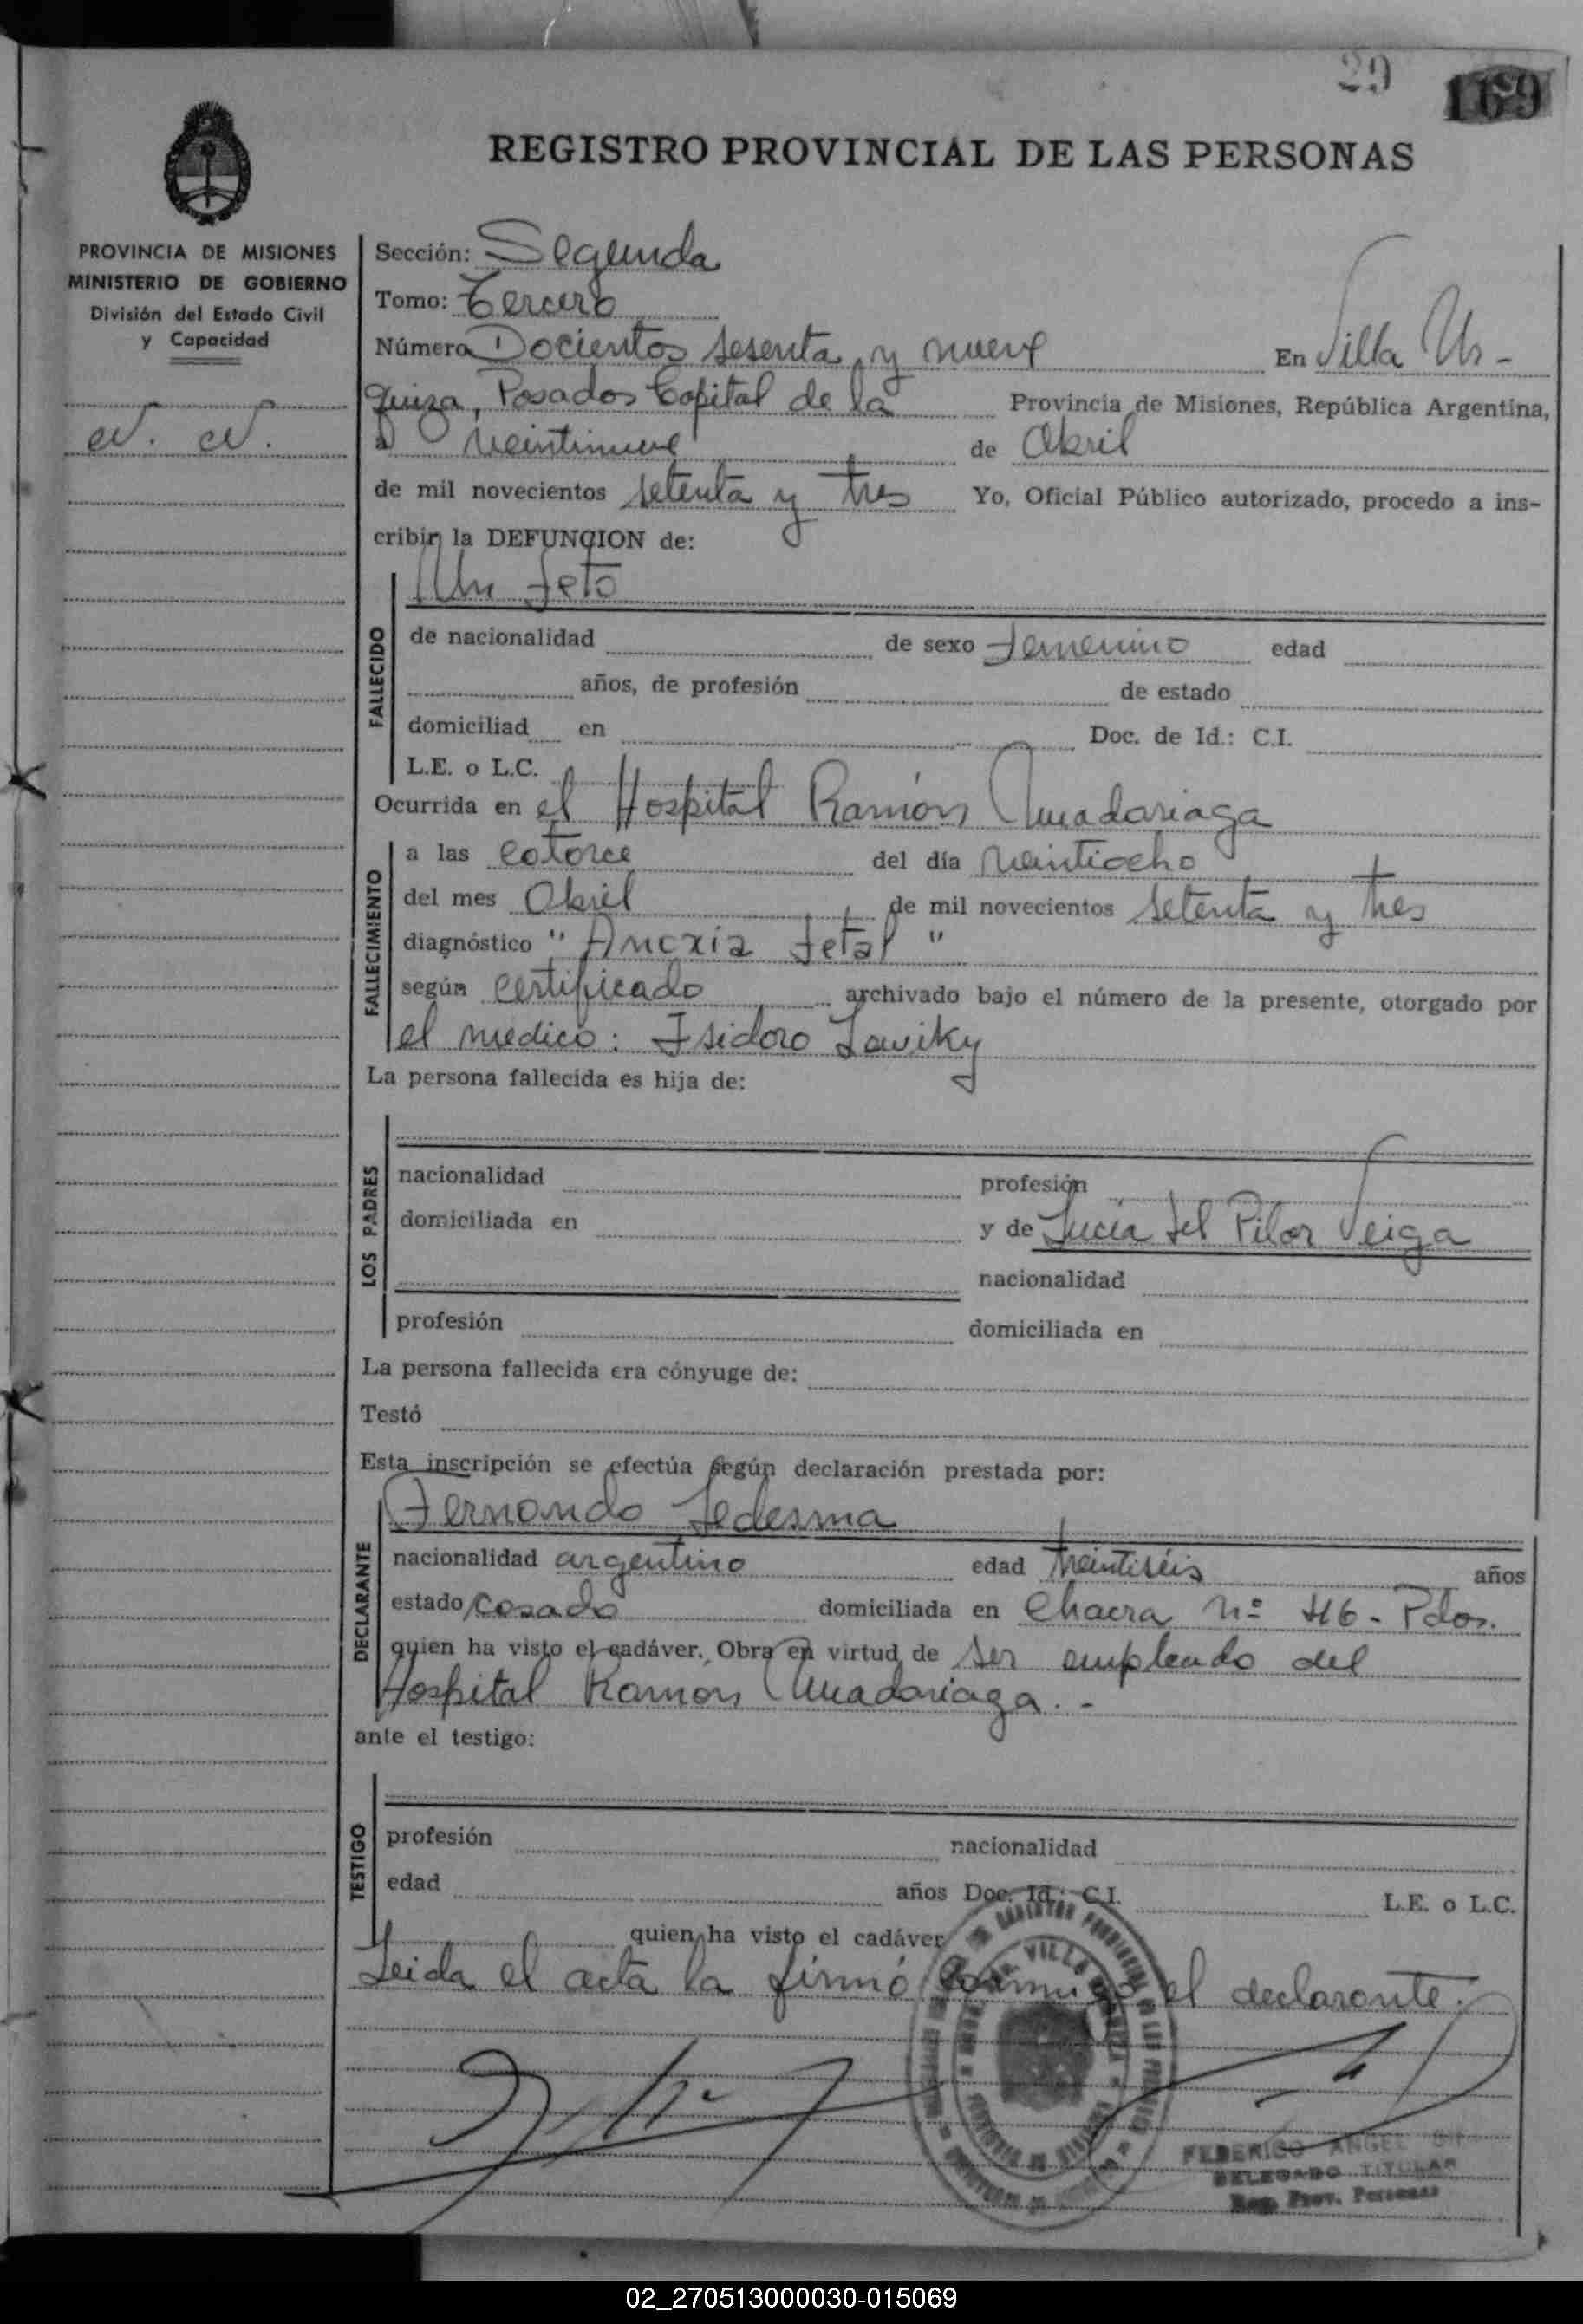 29 169
REGISTRO PROVINCIAL DE LAS PERSONAS
PROVINCIA DE MISIONES
MINISTERIO DE GOBIERNO
División del Estado Civil
y Capacidad
N. N.
Sección: Segunda
Tomo: Tercero
Número Docientos sesenta y nueve En Villa Ur-
quiza, Posadas Capital de la Provincia de Misiones, República Argentina,
a veintinueve de Abril
de mil novecientos setenta y tres Yo, Oficial Público autorizado, procedo a ins-
cribir la DEFUNCION de:
Un feto
FALLECIDO
de nacionalidad de sexo femenino edad
años, de profesión de estado
domiciliad en Doc. de Id.: C.I.
L.E. o L.C.
Ocurrida en el Hospital Ramón Madariaga
FALLECIMIENTO
a las catorce del día veintiocho
del mes Abril de mil novecientos setenta y tres
diagnóstico " Anoxia fetal "
según certificado archivado bajo el número de la presente, otorgado por
el medico: Isidoro Lawiky
La persona fallecida es hija de:
LOS PADRES
nacionalidad profesión
domiciliada en y de Lucía del Pilar Veiga
nacionalidad
profesión domiciliada en
La persona fallecida era cónyuge de:
Testó
Esta inscripción se efectúa según declaración prestada por:
Fernando Ledesma
DECLARANTE
nacionalidad argentino edad treintiséis años
estado casado domiciliada en Chacra nº 46 - Pdas.
quien ha visto el cadáver. Obra en virtud de ser empleado del
Hospital Ramon Madariaga. -
ante el testigo:
TESTIGO
profesión nacionalidad
edad años Doc. Id.: C.I. L.E. o L.C.
quien ha visto el cadáver
Leida el acta la firmó conmigo el declarante.
VILLA
FEDERICO ANGEL
DELEGADO TITULAR
Reg. Prov. Personas
02_270513000030-015069